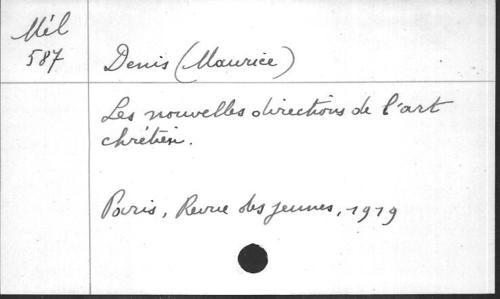 Mél
587
Denis (Maurice)
Les nouvelles directions de l'art
chrétien.
Paris, Revue des jeunes, 1919